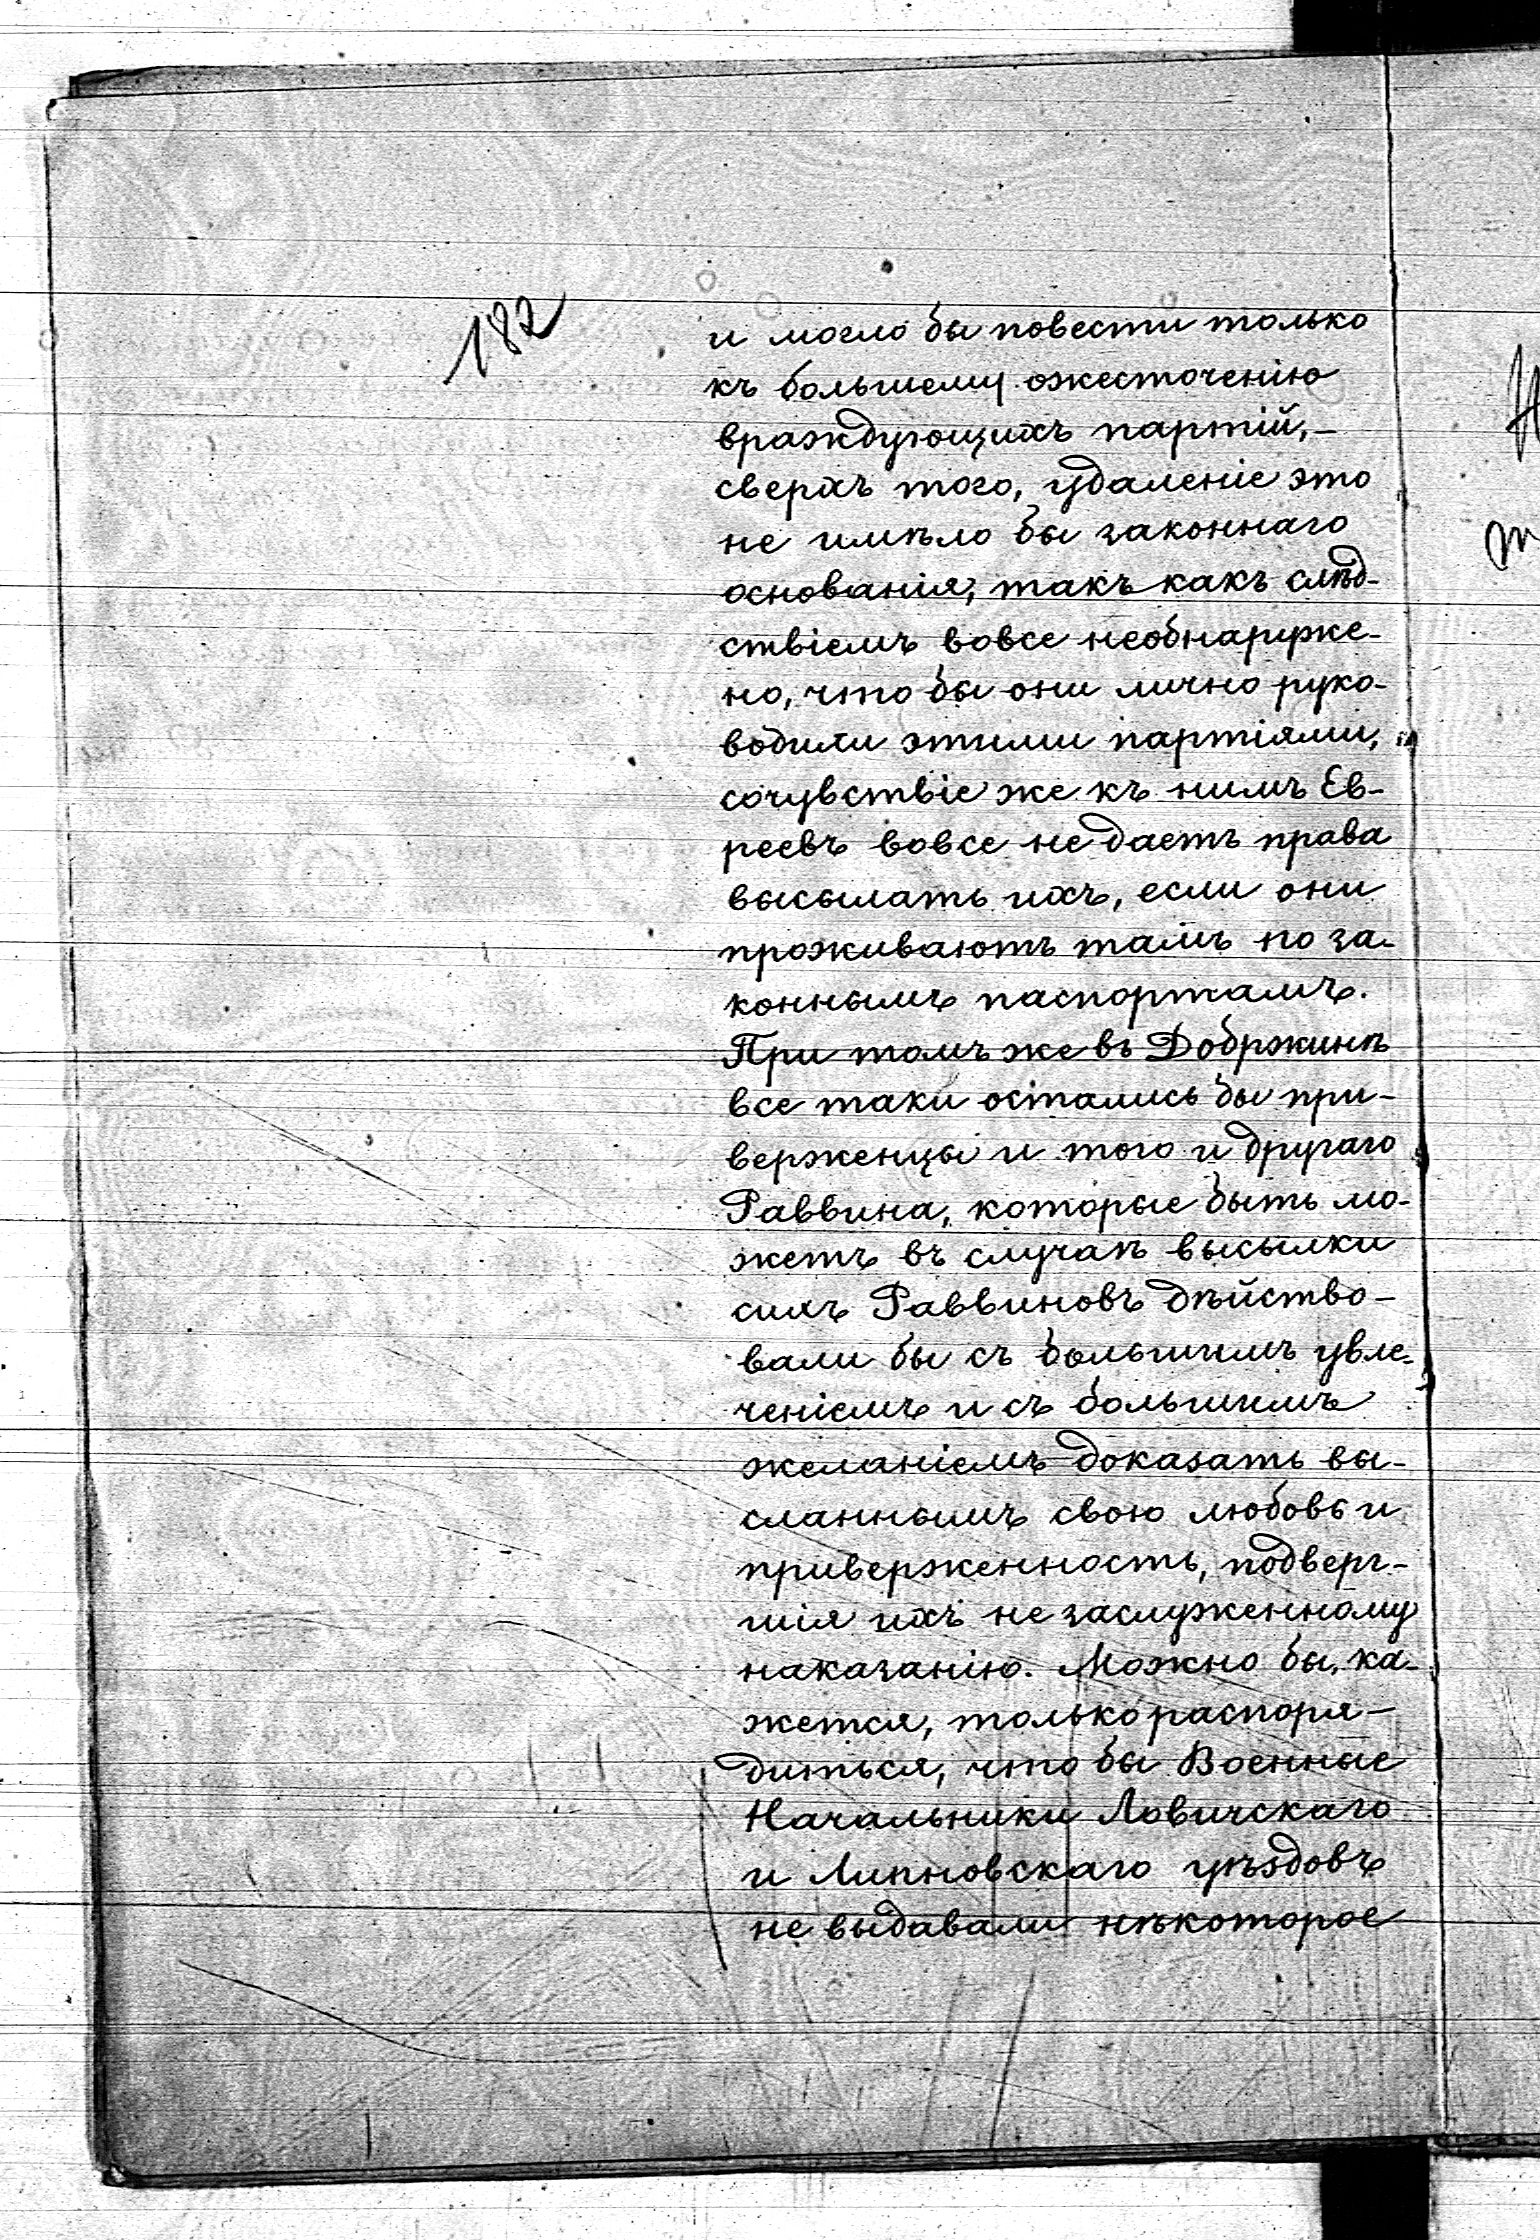 182
и могло бы повести только
къ большему ожесточенію
враждующихъ партій,—
сверхъ того, удаленіе это
не имѣло бы законнаго
основанія, такъ какъ слѣд-
ствіемъ вовсе необнаруже-
но, что бы они лично руко-
водили этими партіями,
сочувствіе же къ нимъ Ев-
реевъ вовсе не даетъ права
высылать ихъ, если они
проживаютъ тамъ по за-
коннымъ паспортамъ.
При томъ же въ Добржинѣ
все таки остались бы при-
верженцы и того и другаго
Раввина, которые быть мо-
жетъ въ случаѣ высылки
сихъ Раввиновъ дѣйство-
вали бы съ большимъ увле-
ченіемъ и съ большимъ
желаніемъ доказать вы-
сланнымъ свою любовь и
приверженность, подверг-
шія ихъ не заслуженному
наказанію. Можно бы, ка-
жется, только распоря-
диться, что бы Военные
Начальники Ловичскаго
и Липновскаго уѣздовъ
не выдавали нѣкоторое